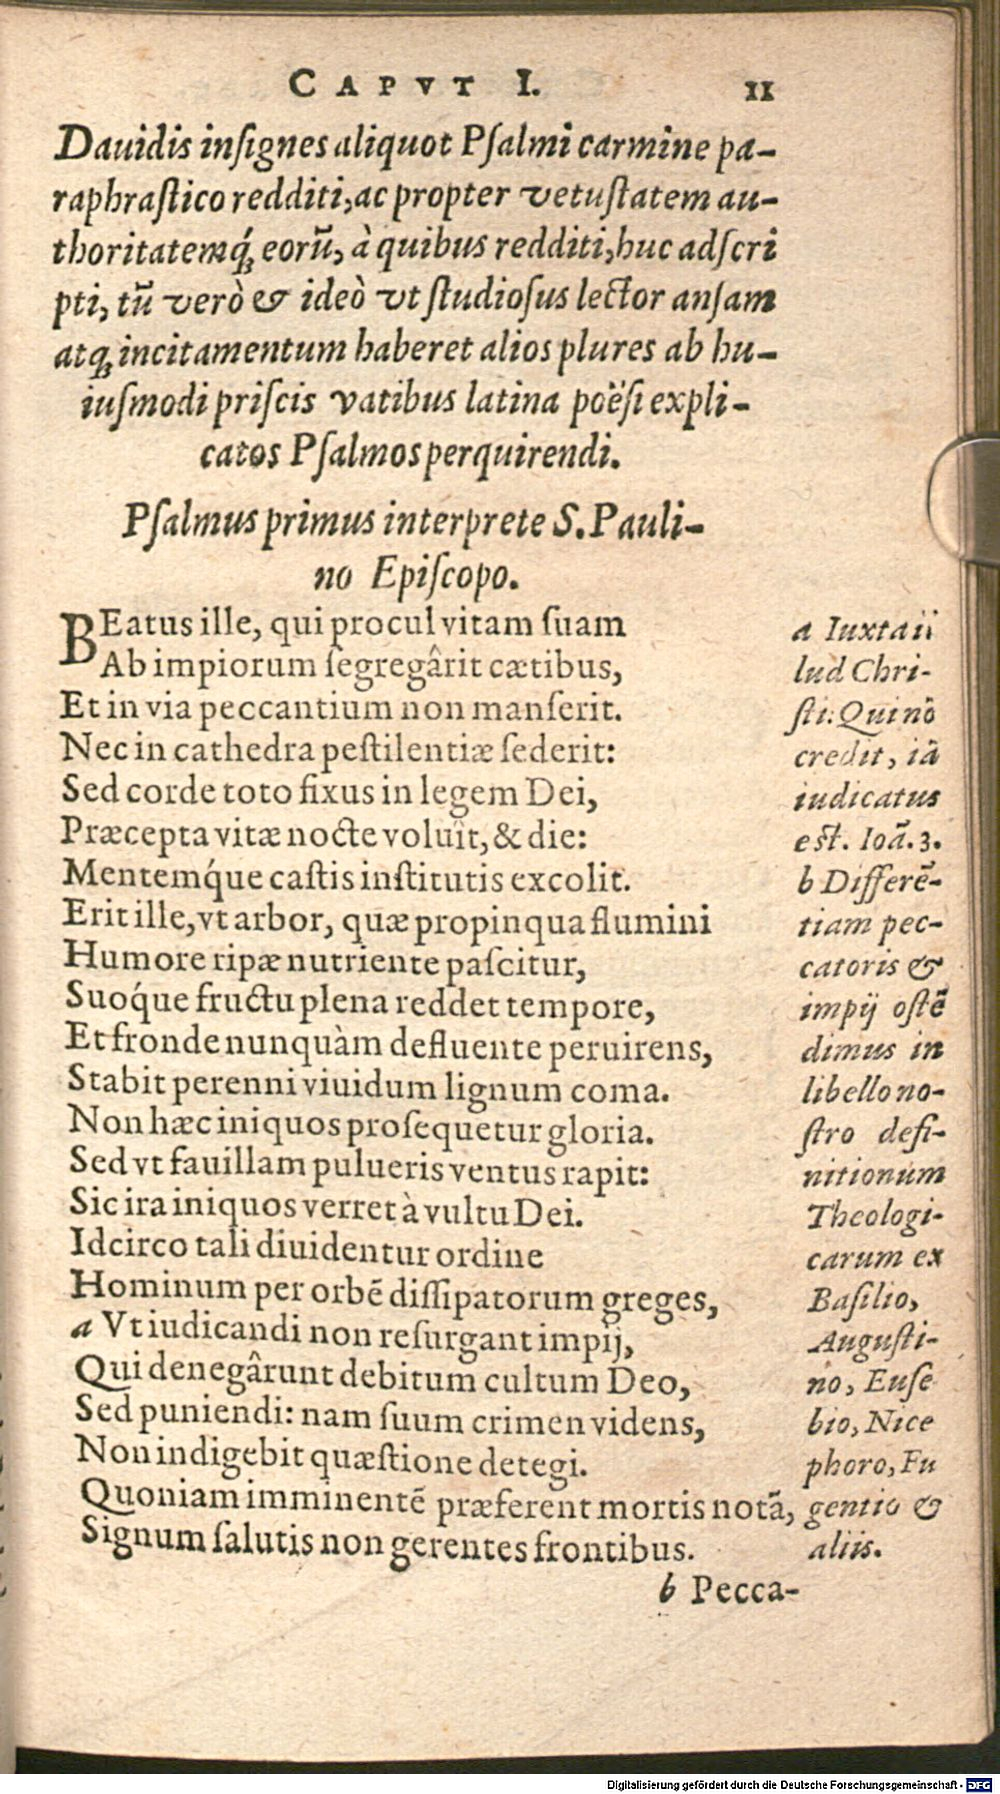 CAPVT I. 11
Dauidis inſignes aliquot Pſalmi carmine pa-
raphraſtico redditi, ac propter vetuſtatem au-
thoritatemq́ꝫ eorũ, à quibus redditi, huc adſcri
pti, tũ verò & ideò vt ſtudioſus lector anſam
atqꝫ incitamentum haberet alios plures ab hu-
iuſmodi priſcis vatibus latina poëſi expli-
catos Pſalmos perquirendi.
Pſalmus primus interprete S. Pauli-
no Epiſcopo.
BEatus ille, qui procul vitam ſuam
Ab impiorum ſegregârit cætibus,
Et in via peccantium non manſerit.
Nec in cathedra peſtilentiæ ſederit:
Sed corde toto fixus in legem Dei,
Præcepta vitæ nocte voluît, & die:
Mentemq́ue caſtis inſtitutis excolit.
Erit ille, vt arbor, quæ propinqua flumini
Humore ripæ nutriente paſcitur,
Suoq́ue fructu plena reddet tempore,
Et fronde nunquàm defluente peruirens,
Stabit perenni viuidum lignum coma.
Non hæc iniquos proſequetur gloria.
Sed vt fauillam pulueris ventus rapit:
Sic ira iniquos verret à vultu Dei.
Idcirco tali diuidentur ordine
Hominum per orbẽ diſſipatorum greges,
a Vt iudicandi non reſurgant impij,
Qui denegârunt debitum cultum Deo,
Sed puniendi: nam ſuum crimen videns,
Non indigebit quæſtione detegi.
Quoniam imminentẽ præferent mortis notã,
Signum ſalutis non gerentes frontibus.
b Pecca-
a Iuxta il
lud Chri-
ſti: Qui nõ
credit, iã
iudicatus
eſt. Ioã. 3.
b Differẽ-
tiam pec-
catoris &
impij oſtẽ
dimus in
libello no-
ſtro defi-
nitionum
Theologi-
carum ex
Baſilio,
Auguſti-
no, Euſe
bio, Nice
phoro, Fu
gentio &
aliis.
Digitalisierung gefördert durch die Deutsche Forschungsgemeinschaft - DFG